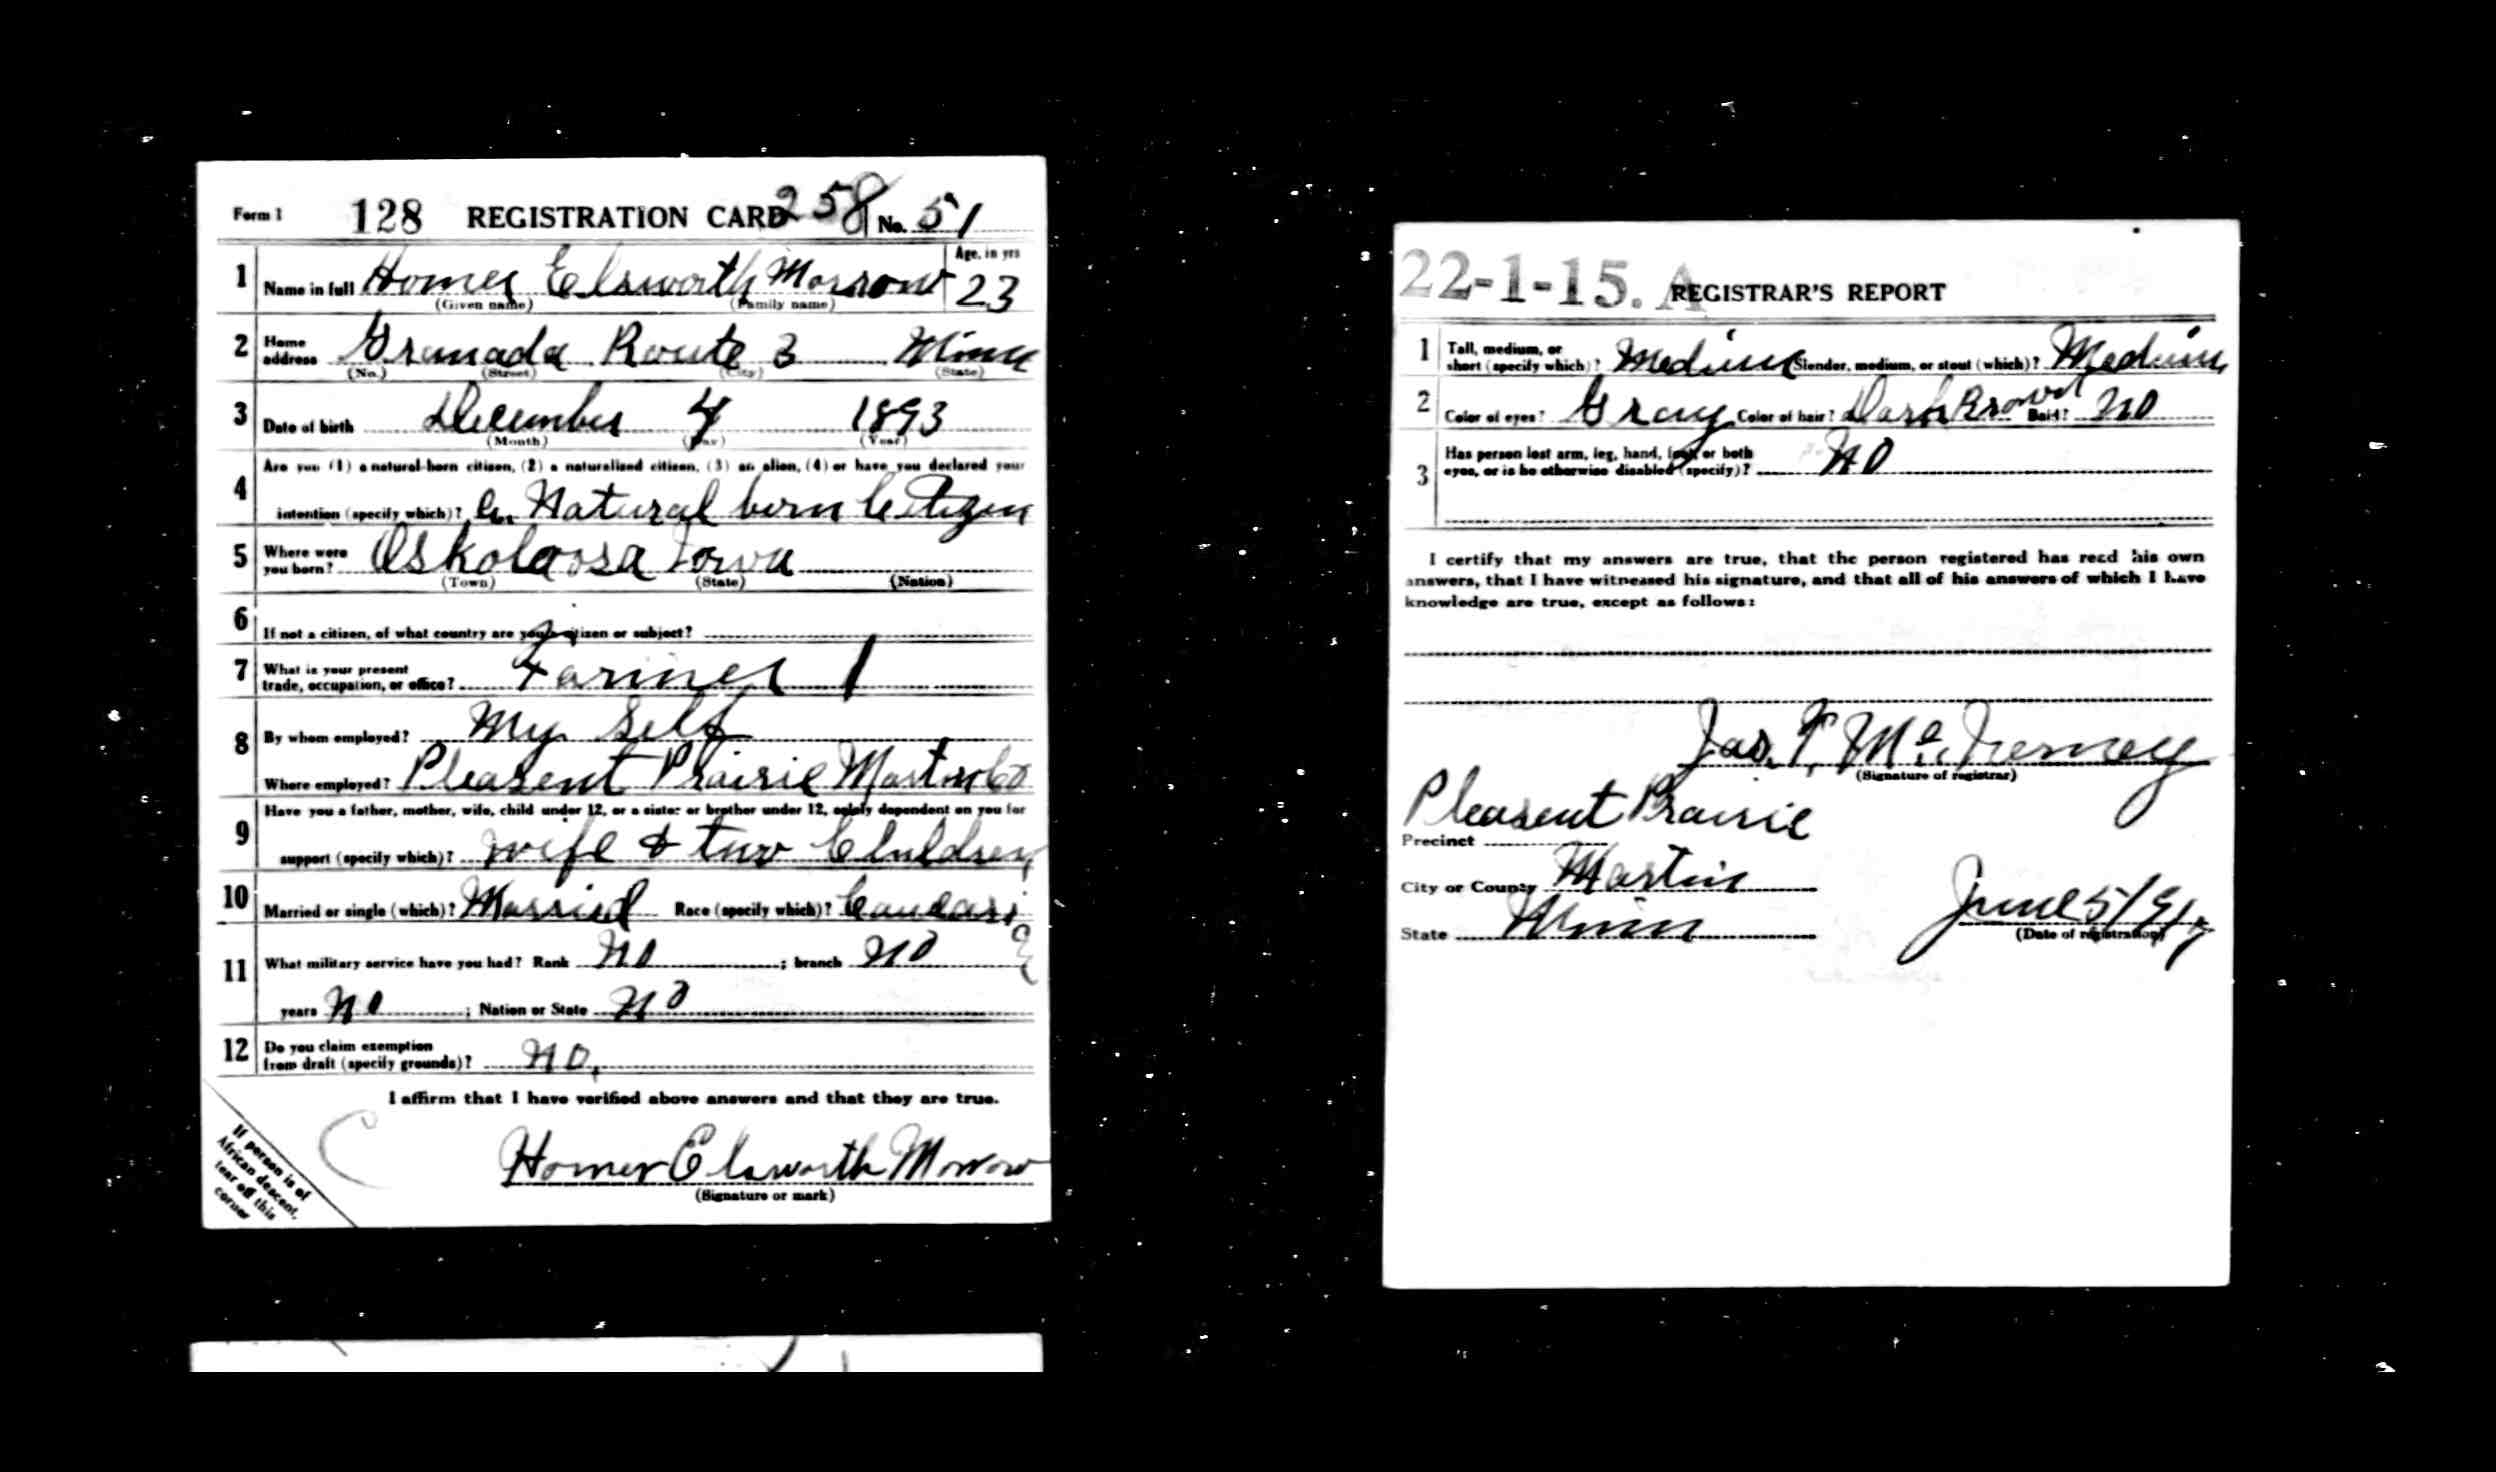 Form 1 128 REGISTRATION CARD 258 No. 51
1 Name in full Homer Elsworth Morrow Age, in yrs 23
(Given name) (Family name)
2 Home address Granada Route 3 Minn
(No.) (Street) (City) (State)
3 Date of birth December 4 1893
(Month) (Day) (Year)
4 Are you (1) a natural-born citizen, (2) a naturalized citizen, (3) an alien, (4) or have you declared your
intention (specify which)? a Natural born Citizen
5 Where were you born? Oskaloosa Iowa
(Town) (State) (Nation)
6 If not a citizen, of what country are you a citizen or subject?
7 What is your present
trade, occupation, or office? Farmer 1
8 By whom employed? My Self
Where employed? Pleasent Prairie Martin Co
9 Have you a father, mother, wife, child under 12, or a sister or brother under 12, solely dependent on you for
support (specify which)? wife & two Children
10 Married or single (which)? Married Race (specify which)? Caucasi
11 What military service have you had? Rank no ; branch no
years no ; Nation or State no
12 Do you claim exemption
from draft (specify grounds)? no.
I affirm that I have verified above answers and that they are true.
Homer Elsworth Morrow
(Signature or mark)
If person is of
African descent,
tear off this
corner
22-1-15. A REGISTRAR'S REPORT
1 Tall, medium, or
short (specify which)? Medium Slender, medium, or stout (which)? Medium
2 Color of eyes? Gray Color of hair? Dark Brown Bald? no
3 Has person lost arm, leg, hand, foot, or both
eyes, or is he otherwise disabled (specify)? no
I certify that my answers are true, that the person registered has read his own
answers, that I have witnessed his signature, and that all of his answers of which I have
knowledge are true, except as follows:
Jas. T. Mc.
(Signature of registrar)
Pleasent Prairie
Precinct
City or County Martin
State Minn June 5/917
(Date of registration)